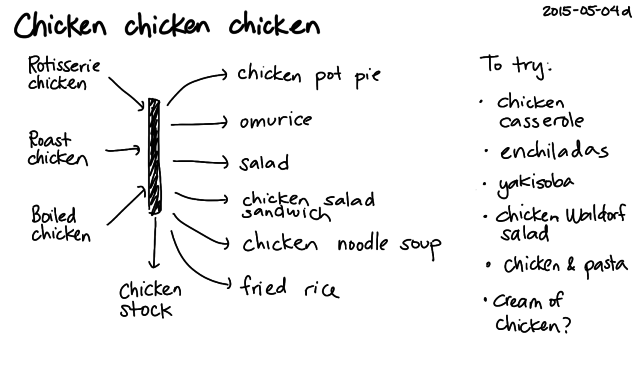 Chicken chicken chicken
2015-05-04d
Rotisserie
chicken
Roast
chicken
Boiled
chicken
Chicken
stock
chicken pot pie
omurice
salad
chicken salad
sandwich
chicken noodle soup
fried rice
To try:
• chicken
casserole
• enchiladas
• yakisoba
• chicken Waldorf
salad
• chicken & pasta
• cream of
chicken?